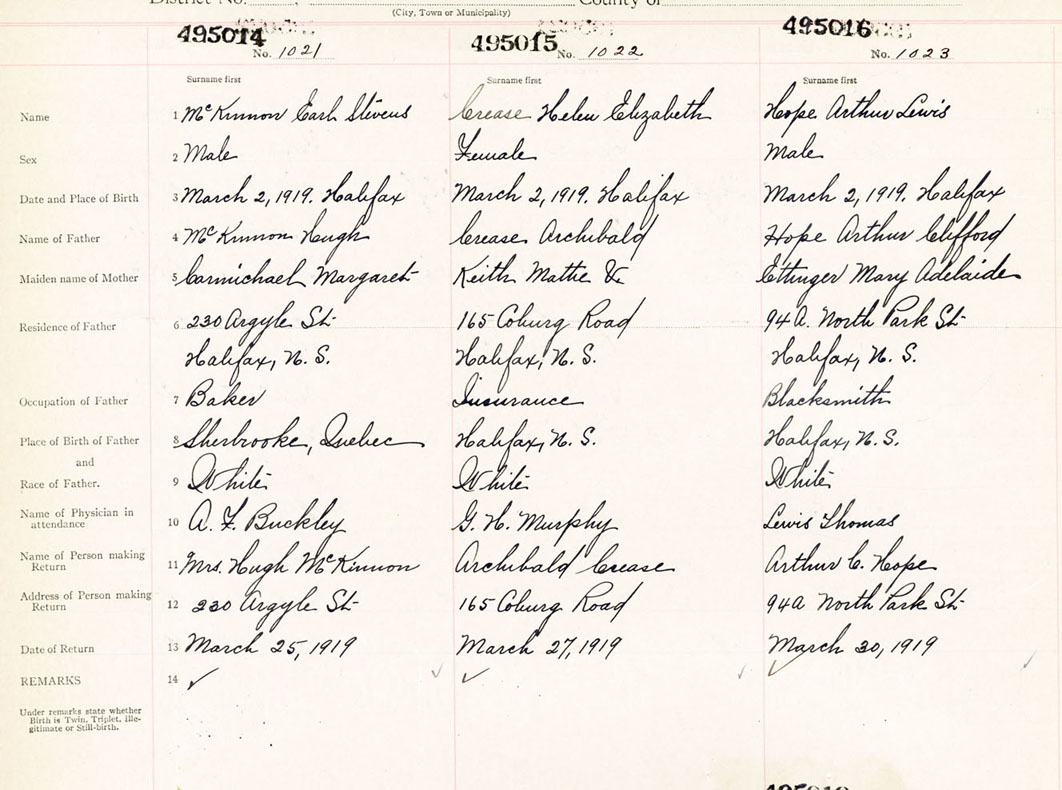 (City, Town or Municipality)
495014 495015 495016
No. 1021 No. 1022 No. 1023
Surname first Surname first Surname first
Name 1 McKinnon Earl Stevens Crease Helen Elizabeth Hope Arthur Lewis
Sex 2 Male Female Male
Date and Place of Birth 3 March 2, 1919. Halifax March 2, 1919. Halifax March 2, 1919. Halifax
Name of Father 4 McKinnon Hugh Crease Archibald Hope Arthur Clifford
Maiden name of Mother 5 Carmichael Margaret Keith Mattie Ettinger Mary Adelaide
Residence of Father 6 230 Argyle St. 165 Coburg Road 94A. North Park St.
Halifax, N. S. Halifax, N. S. Halifax, N. S.
Occupation of Father 7 Baker Insurance Blacksmith
Place of Birth of Father 8 Sherbrooke, Quebec Halifax, N. S. Halifax, N. S.
and
Race of Father. 9 White White White
Name of Physician in attendance 10 A. F. Buckley G. H. Murphy Lewis Thomas
Name of Person making Return 11 Mrs. Hugh McKinnon Archibald Crease Arthur C. Hope
Address of Person making Return 12 230 Argyle St. 165 Coburg Road 94A North Park St.
Date of Return 13 March 25, 1919 March 27, 1919 March 30, 1919
REMARKS 14 ✓ ✓ ✓
Under remarks state whether
Birth is Twin, Triplet, Ille-
gitimate or Still-birth.